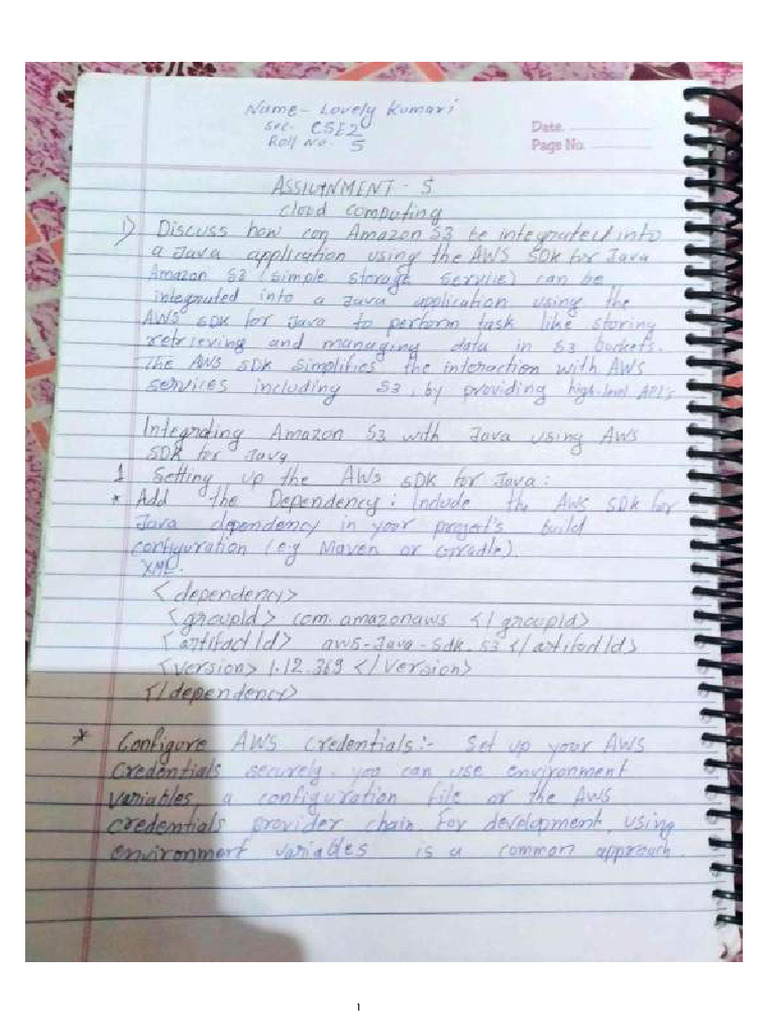 Name- Lovely Kumari
Sec- CSE2
Roll No. 5
Date.
Page No.
ASSIGNMENT - 5
cloud computing
1) Discuss how can Amazon S3 be integrated into
a Java application using the AWS SDK for Java
Amazon S3 (simple storage service) can be
integrated into a Java application using the
AWS SDK for Java to perform task like storing
retrieving and managing data in S3 buckets.
The AWS SDK simplifies the interaction with AWS
services including S3, by providing high-level API's
Integrating Amazon S3 with Java using AWS
SDK for Java
1 Setting up the AWS SDK for Java:
* Add the Dependency: Include the AWS SDK for
Java dependency in your project's build
configuration (e.g Maven or Gradle).
XML.
<dependency>
<groupId> com.amazonaws </groupId>
<artifactId> aws-Java-Sdk.S3 </artifactId>
<version> 1.12.369 </version>
</dependency>
* Configure AWS Credentials:- Set up your AWS
credentials securely. you can use environment
variables, a configuration file or the AWS
credentials provider chain. For development, using
environment variables is a common approach.
1